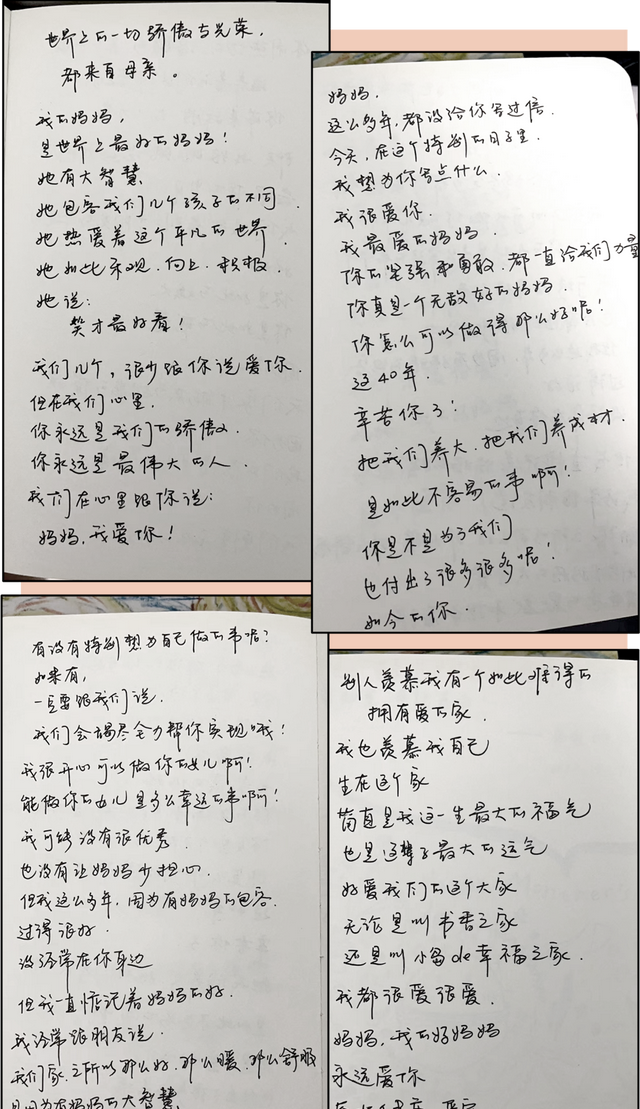 世界上的一切骄傲与光荣，
都来自母亲。
我的妈妈，
是世界上最好的妈妈！
她有大智慧
她包容我们几个孩子的不同
她热爱着这个平凡的世界
她如此乐观、向上、积极
她说：
笑才最好看！
我们几个，很少跟你说爱你
但在我们心里
你永远是我们的骄傲
你永远是最伟大的人
我们在心里跟你说：
妈妈，我爱你！
妈妈，
这么多年，都没给你写过信
今天，在这个特别的日子里
我想为你写点什么
我很爱你
我最爱的妈妈
你的坚强和勇敢，都一直给我们力量
你真是一个无敌好的妈妈
你怎么可以做得那么好呢！
这40年
辛苦你了！
把我们养大，把我们养成材
是如此不容易的事啊！
你是不是为了我们
也付出了很多很多呢！
如今的你
有没有特别想为自己做的事呢？
如果有，
一定要跟我们说
我们会竭尽全力帮你实现哦！
我很开心可以做你的女儿啊！
能做你的女儿是多么幸运的事啊！
我可能没有很优秀
也没有让妈妈少担心
但我这么多年，因为有妈妈的包容
过得很好
没经常在你身边
但我一直惦记着妈妈的好
我经常跟朋友说
我们家之所以那么好、那么暖、那么舒服
是因为有妈妈的大智慧
别人羡慕我有一个如此难得的
拥有爱的家
我也羡慕我自己
生在这个家
简直是我这一生最大的福气
也是这辈子最大的运气
好爱我们的这个大家
无论是叫书香之家
还是叫小留de幸福之家
我都很爱很爱
妈妈，我的好妈妈
永远爱你